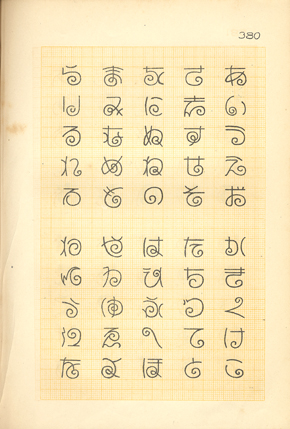 380
あいうえお
さしすせそ
なにぬねの
まみむめも
らりるれろ
かきくけこ
たちつてと
はひふへほ
やゆよ
わうを